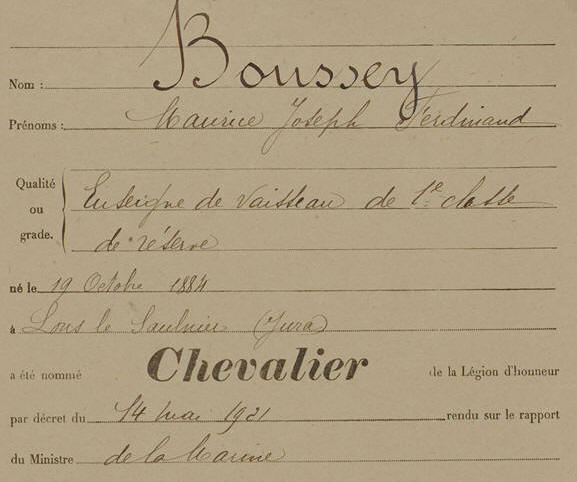 Nom : Boussey
Prénoms : Maurice Joseph Ferdinand
Qualité ou grade. Enseigne de vaisseau de 1e classe
de réserve
né le 19 Octobre 1884
à Lons le Saulnier (Jura)
a été nommé Chevalier de la Légion d'honneur
par décret du 14 mai 1921 rendu sur le rapport
du Ministre de la Marine